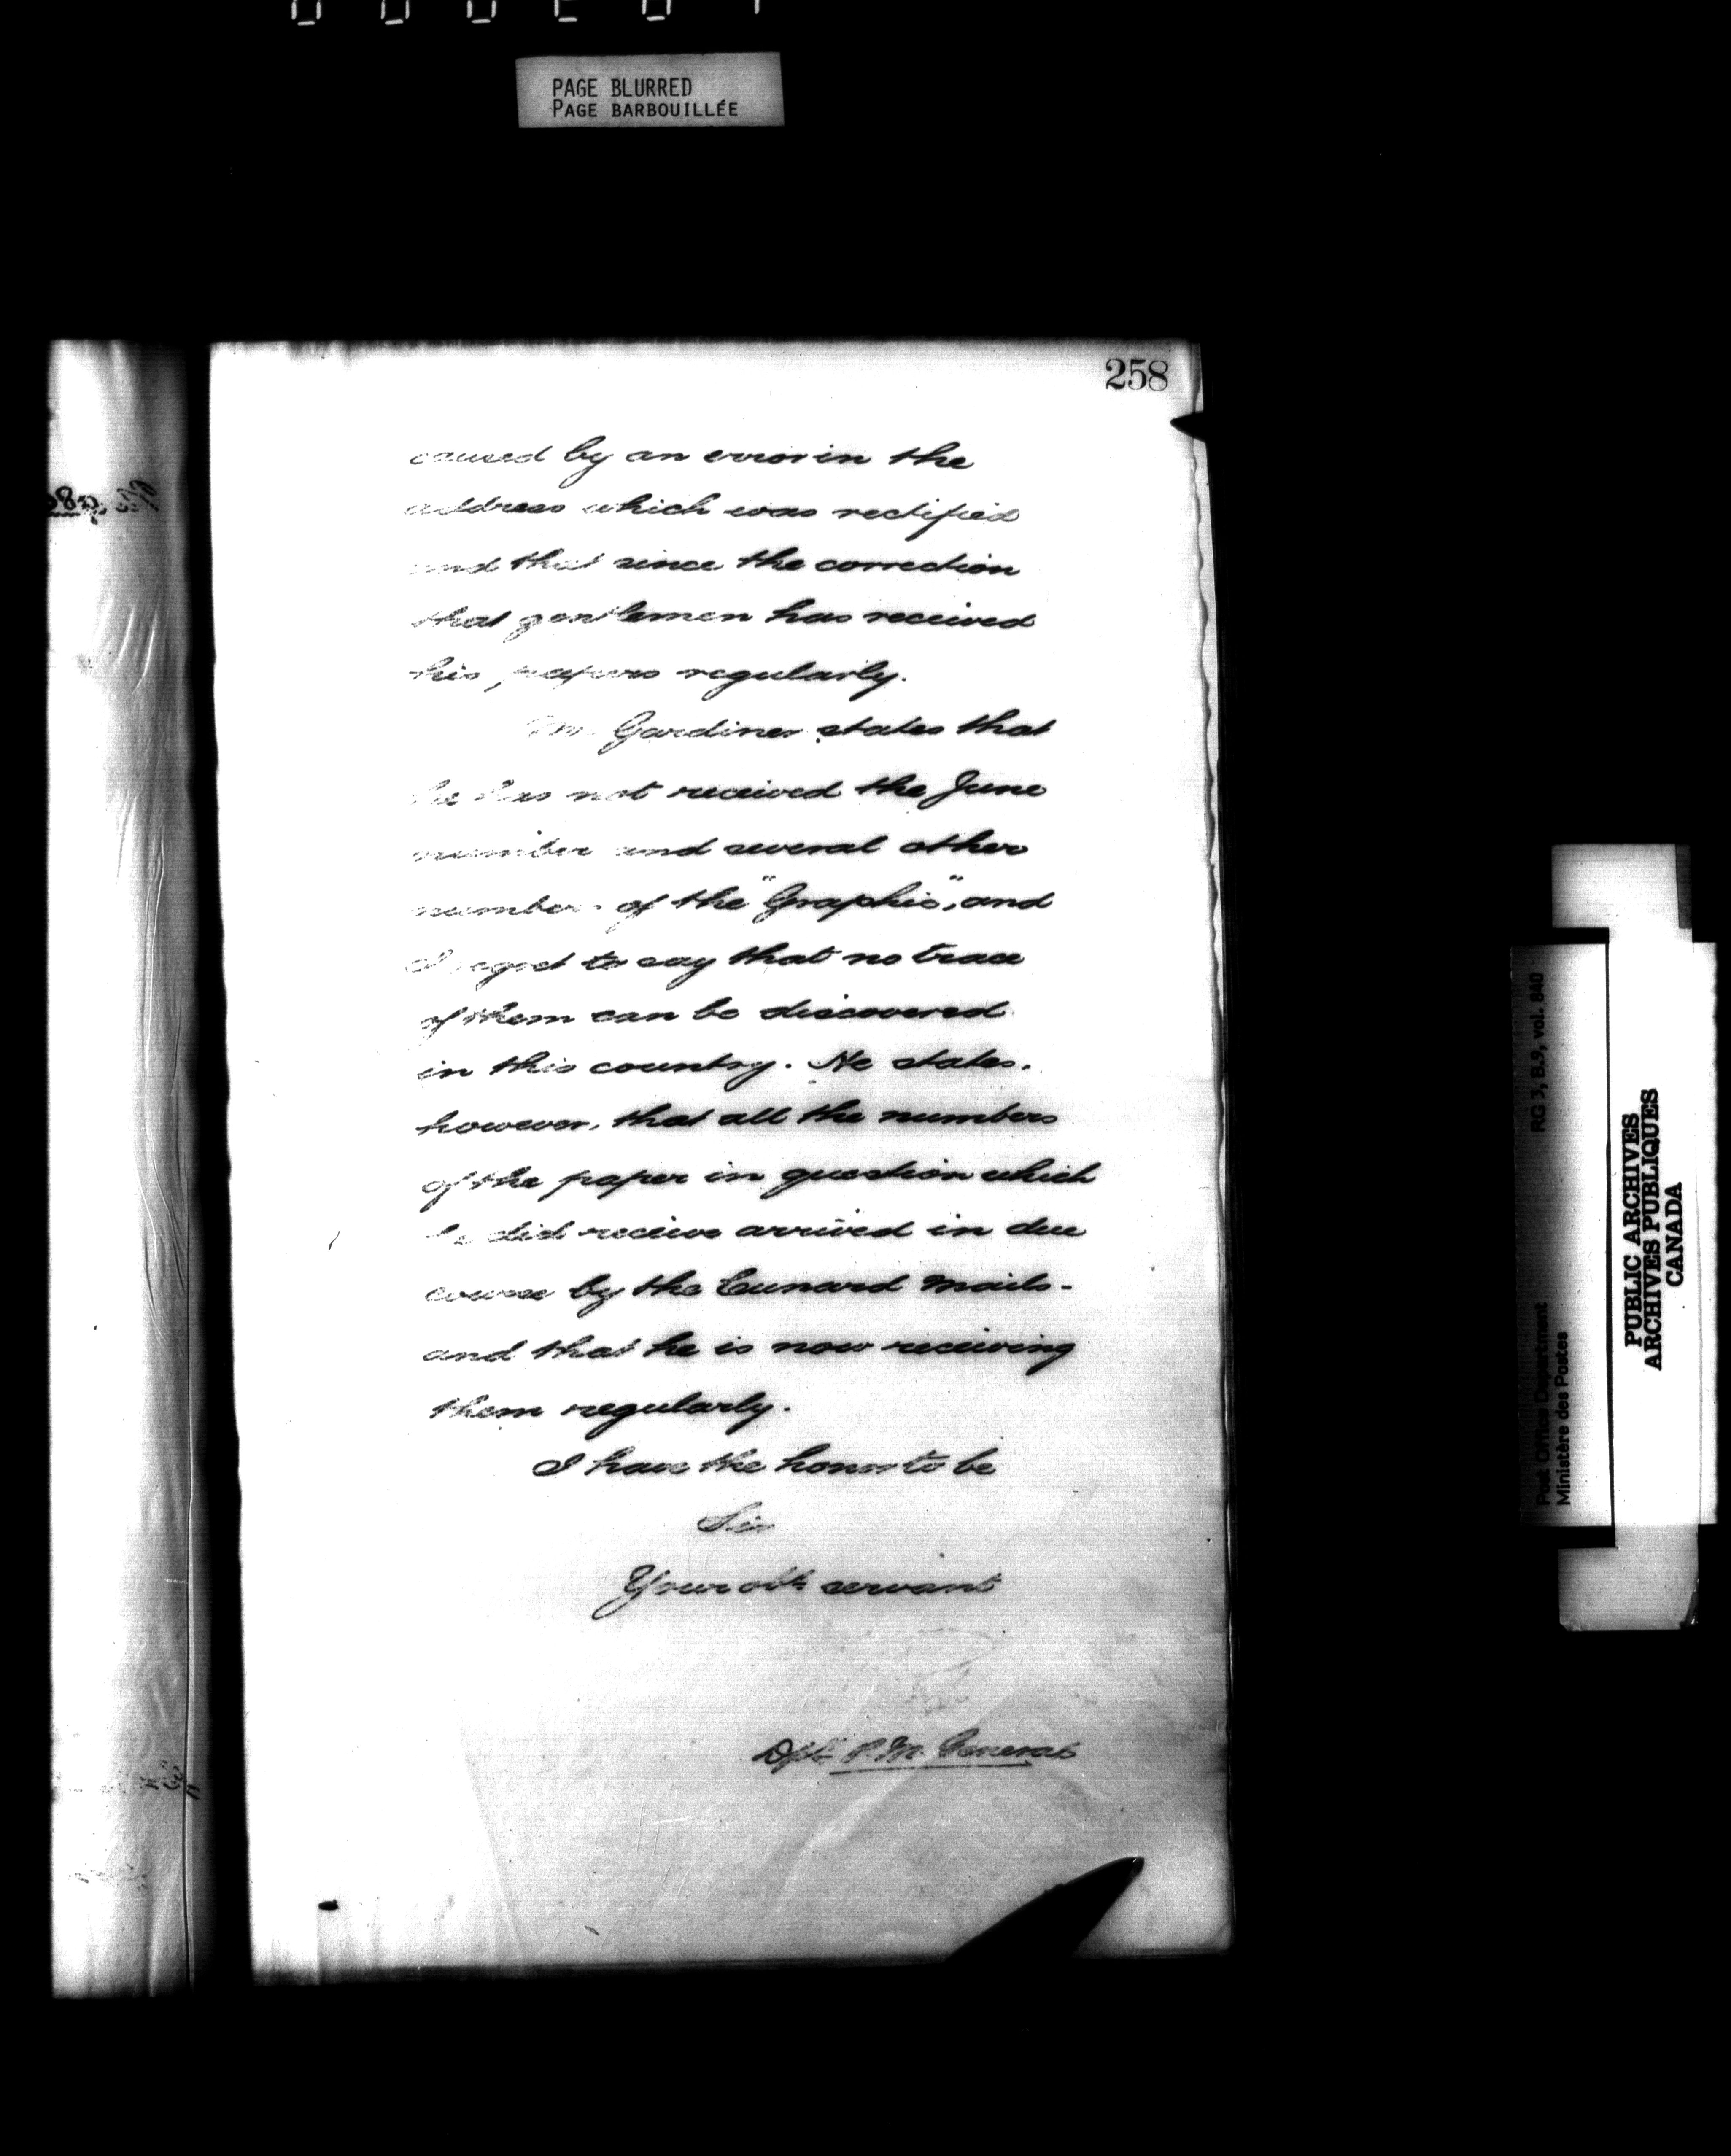 PAGE BLURRED
PAGE BARBOUILLÉE
258
caused by an error in the
address which was rectified
and that since the correction
that gentleman has received
his papers regularly.
Mr Gardiner states that
he has not received the June
number and several other
numbers of the "Graphic", and
I regret to say that no trace
of them can be discovered
in this country. He states,
however, that all the numbers
of the paper in question which
he did receive arrived in due
course by the Cunard Mails -
and that he is now receiving
them regularly.
I have the honor to be
Sir
Your obt servant
P. M. General
RG 3, B.9, vol. 840
Post Office Department
Ministère des Postes
PUBLIC ARCHIVES
ARCHIVES PUBLIQUES
CANADA